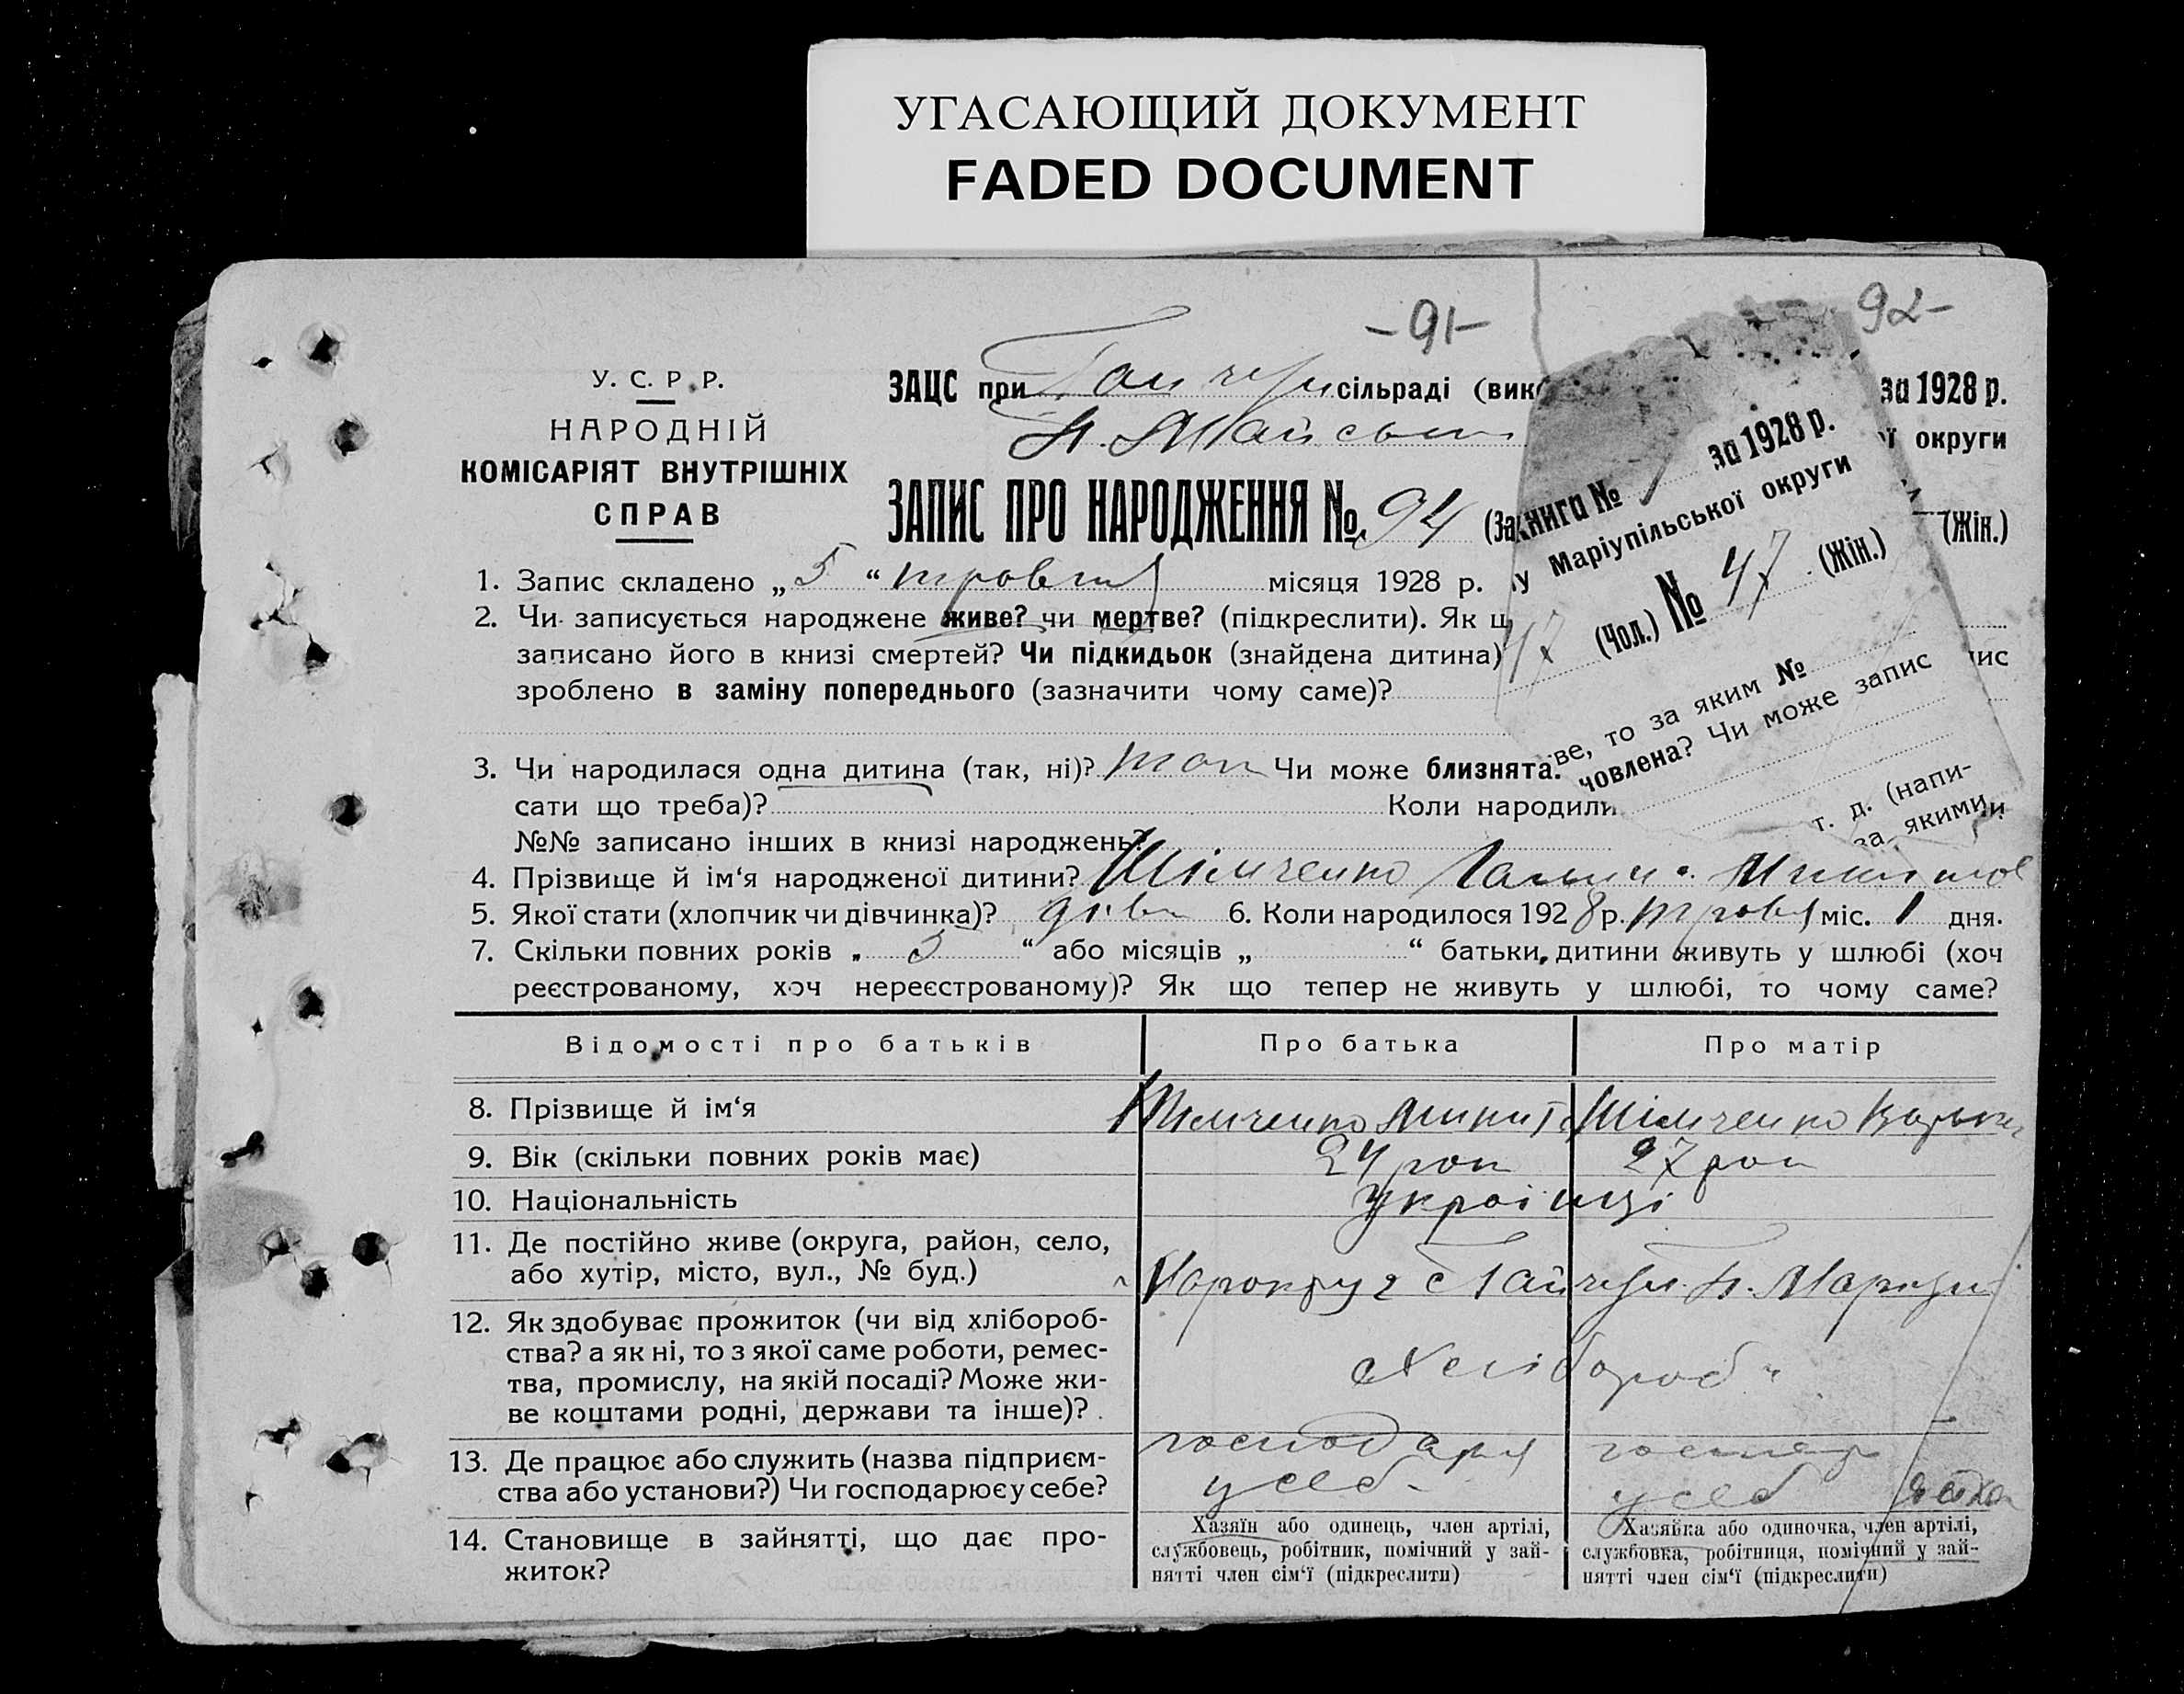 УГАСАЮЩИЙ ДОКУМЕНТ
FADED DOCUMENT
-91-
92-
У. С. Р. Р.
НАРОДНІЙ
КОМІСАРІЯТ ВНУТРІШНІХ
СПРАВ
ЗАЦС при сільраді (вик
за 1928 р.
ї округи
книга № за 1928 р.
у Маріупільської округи
ЗАПИС ПРО НАРОДЖЕННЯ №. 94 (За
47 (Чол.) № 47 (Жін.)
(Жін.)
1. Запис складено „ 5 “ травня місяця 1928 р.
2. Чи записується народжене живе? чи мертве? (підкреслити). Як щ
ве, то за яким №
записано його в книзі смертей? Чи підкидьок (знайдена дитина)
човлена? Чи може запис
ис
зроблено в заміну попереднього (зазначити чому саме)?
3. Чи народилася одна дитина (так, ні)? так Чи може близнята.
т. д. (напи-
сати що треба)? Коли народили
за якими
и
№№ записано інших в книзі народжень?
4. Прізвище й ім‘я народженої дитини?
5. Якої стати (хлопчик чи дівчинка)? дівч 6. Коли народилося 1928 р. травня міс. 1 дня.
7. Скільки повних років „ 3 “ або місяців „ “ батьки, дитини живуть у шлюбі (хоч
реєстрованому, хоч нереєстрованому)? Як що тепер не живуть у шлюбі, то чому саме?
Відомості про батьків Про батька Про матір
8. Прізвище й ім‘я
9. Вік (скільки повних років має) 24 рок 27 рок
10. Національність Українці
11. Де постійно живе (округа, район, село,
або хутір, місто, вул., № буд.)
12. Як здобуває прожиток (чи від хлібороб-
ства? а як ні, то з якої саме роботи, ремес-
тва, промислу, на якій посаді? Може жи-
ве коштами родні, держави та інше)?
Хлібороб
13. Де працює або служить (назва підприєм-
ства або установи?) Чи господарює у себе?
господаря
у себ
у себ
14. Становище в зайнятті, що дає про-
житок?
Хазяїн або одинець, член артілі,
службовець, робітник, помічний у зай-
нятті член сім‘ї (підкреслити)
Хазяйка або одиночка, член артілі,
службовка, робітниця, помічний у зай-
нятті член сім‘ї (підкреслити)